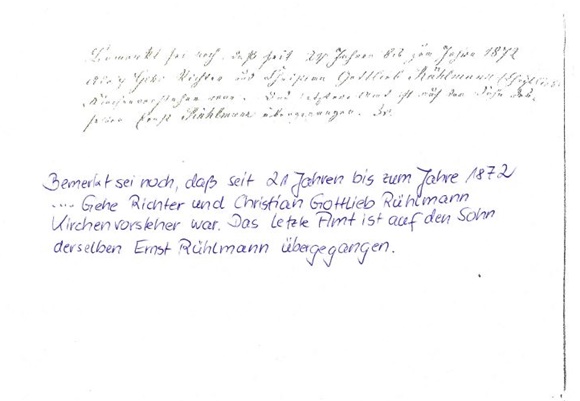 Bemerkt sei noch, daß seit 21 Jahren bis zum Jahre 1872
Gehe Richter und Christian Gottlieb Rühlmann
Kirchenvorsteher war. Das letztere Amt ist auf den Sohn
Ernst Rühlmann übergegangen.
Bemerkt sei noch, daß seit 21 Jahren bis zum Jahre 1872
.... Gehe Richter und Christian Gottlieb Rühlmann
Kirchenvorsteher war. Das letzte Amt ist auf den Sohn
derselben Ernst Rühlmann übergegangen.